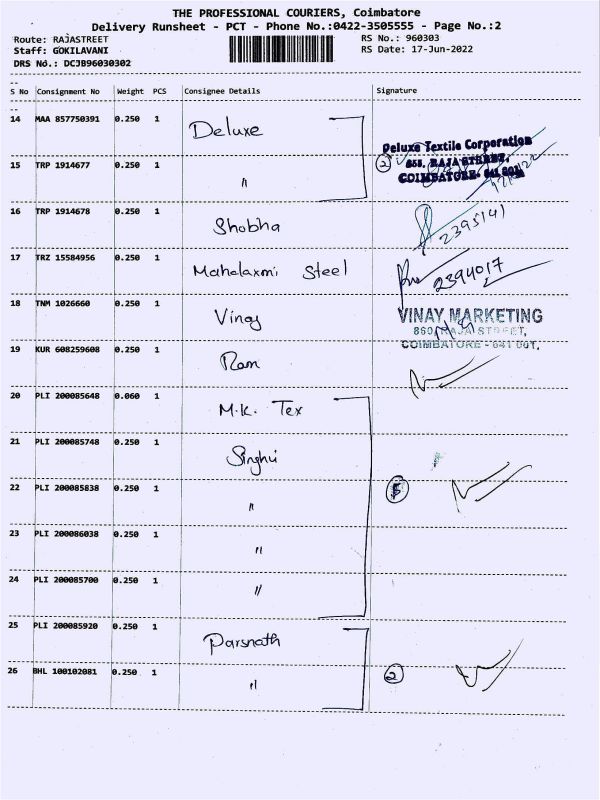 THE PROFESSIONAL COURIERS, Coimbatore
Delivery Runsheet - PCT - Phone No.:0422-3505555 - Page No.:2
Route: RAJASTREET RS No.: 960303
Staff: GOKILAVANI RS Date: 17-Jun-2022
DRS No.: DCJB96030302
--
S No Consignment No Weight PCS Consignee Details Signature
--
14 MAA 857750391 0.250 1 Deluxe
Deluxe Textile Corporation
858, RAJA STREET,
COIMBATORE- 641 001
15 TRP 1914677 0.250 1 " 2
16 TRP 1914678 0.250 1 Shobha 2395141
17 TRZ 15584956 0.250 1 Mahalaxmi Steel 2394017
18 TNM 1026660 0.250 1 Vinay
VINAY MARKETING
860, RAJA STREET,
COIMBATORE - 641 001.
19 KUR 608259608 0.250 1 Ram
20 PLI 200085648 0.060 1 M.K. Tex
21 PLI 200085748 0.250 1 Singhvi
22 PLI 200085838 0.250 1 " 5
23 PLI 200086038 0.250 1 "
24 PLI 200085700 0.250 1 "
25 PLI 200085920 0.250 1 Parsnath
26 BHL 100102081 0.250 1 " 2